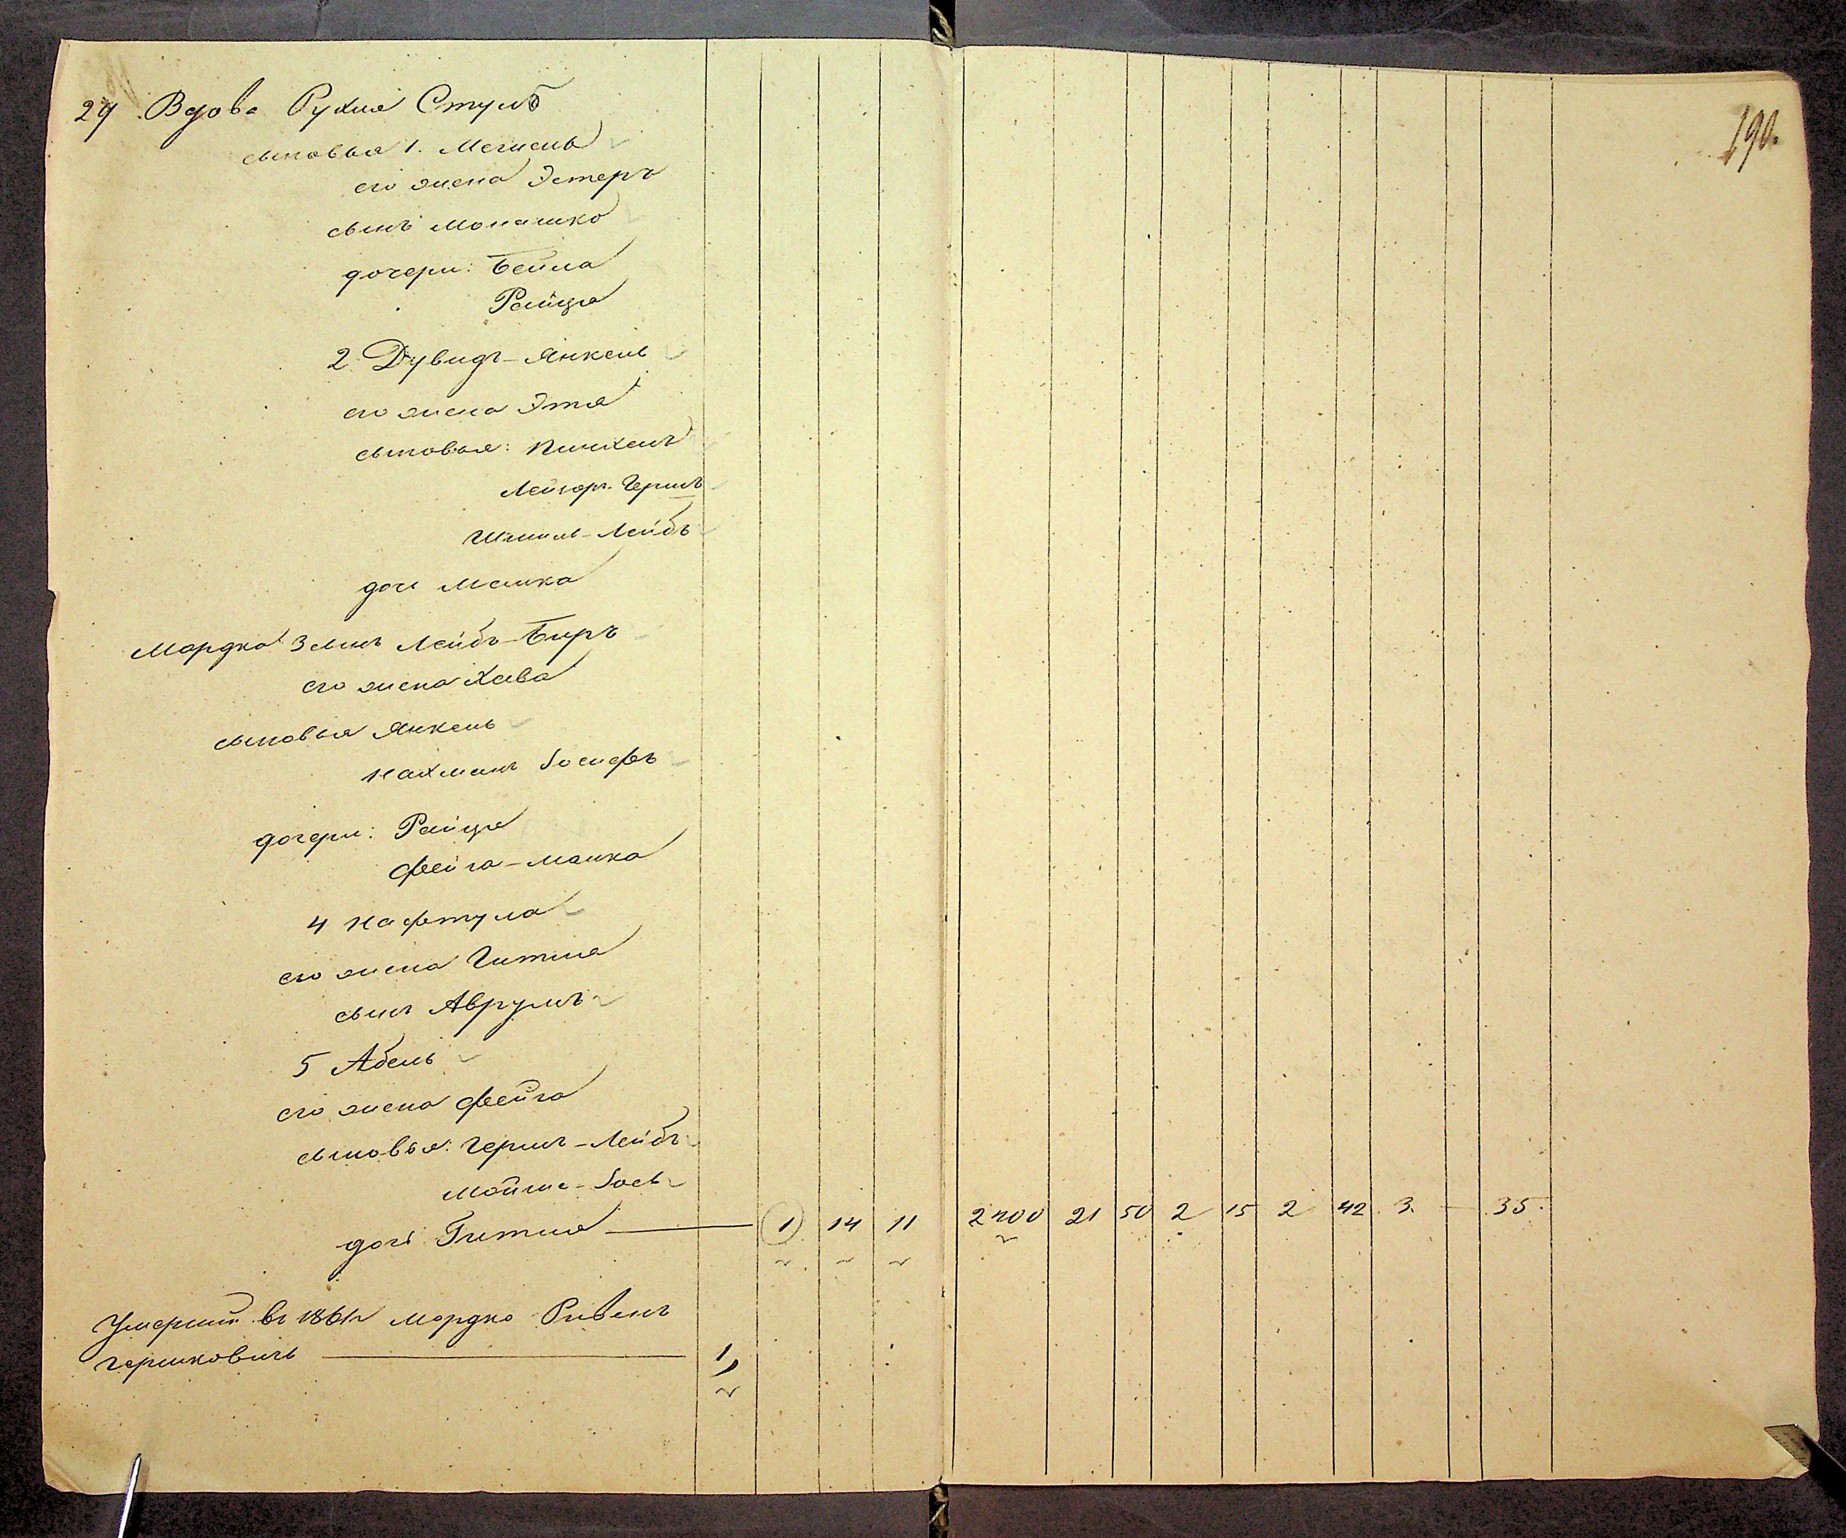 190.
29 Вдова Рухля Стулб
сыновья 1. Мегиель
его жена Эстеръ
сынъ Монашко
дочери: Бейла
Райца
2. Дувидъ-Янкель
его жена Этя
сыновья: Пинхасъ
Лейзоръ-Гершъ
Шмиль-Лейбъ
дочь Малка
Мордка 3 сынъ Лейбъ-Беръ
его жена Хава
сыновья Янкель
Нахманъ Іосифъ
дочери: Райца
Фейга-Малка
4 Нафтула
его жена Гитля
сынъ Аврумъ
5 Абель
его жена Фейга
сыновья: Гершъ-Лейбъ
Мойше-Іось
дочь Гитля — 1 14 11 2400 21 50 2 15 2 42 3 — 35.
Умершій въ 1861 г Мордко Рувенъ
Гершковичъ — 1